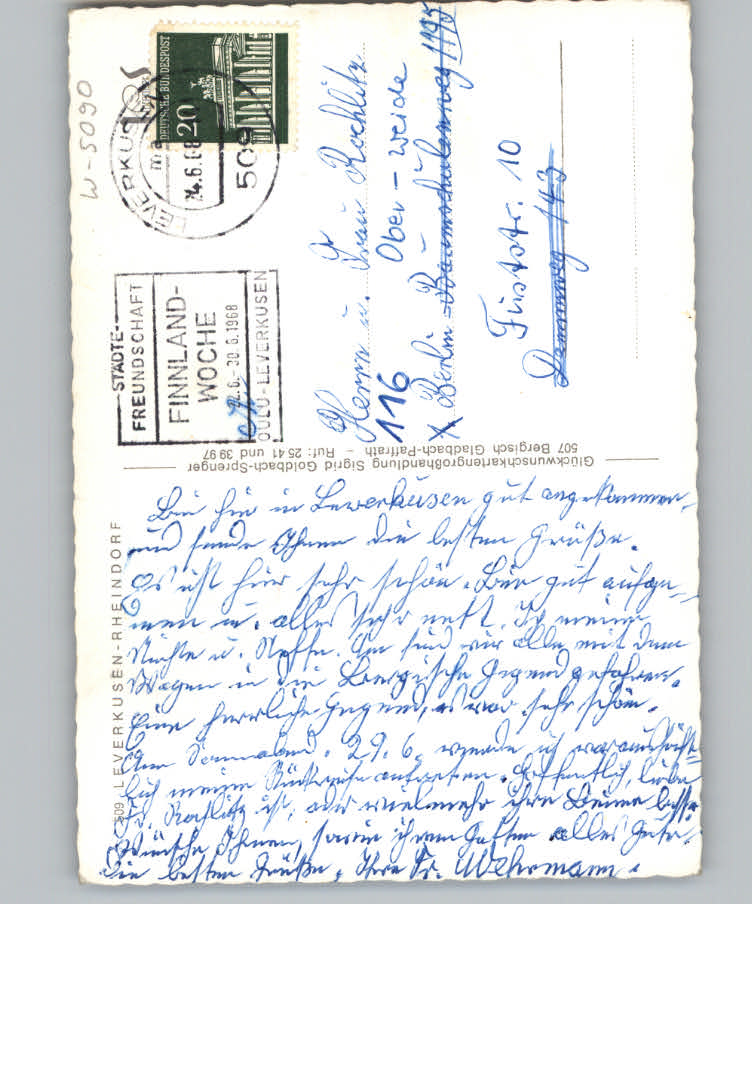 W-5090
LEVERKUSEN
24.6.68
509
DEUTSCHE BUNDESPOST
20
STÄDTE-
FREUNDSCHAFT
FINNLAND-
WOCHE
22.6.-30.6.1968
OULU-LEVERKUSEN
Herrn u. Frau Rochlitz
116 Ober-weide
X Berlin - Baumschulenweg 1195
Fuststr. 10
Dammweg 143
Glückwunschkartengroßhandlung Sigrid Goldbach-Sprenger
507 Bergisch Gladbach-Paffrath - Ruf: 25 41 und 39 97
509 LEVERKUSEN-RHEINDORF
Bin hier in Leverkusen gut angekommen,
und sende Ihnen die besten Grüße.
Es ist hier sehr schön. Bin gut aufge-
men u. alles sehr nett. meine
Nichte u. Neffe. sind wir alle mit dem
Wagen in die Bergische Gegend gefahren.
Eine herrliche Gegend, es war sehr schön.
Am Sonnabend, 29.6. werde ich voraussicht-
lich meine Rückreise antreten. Hoffentlich, liebe
Fr. Rochlitz ist, oder vielmehr ihre Beine besser
Wünsche Ihnen, sowie ihrem Gatten alles Gute.
Die besten Grüße, Ihre Fr. Wehrmann.